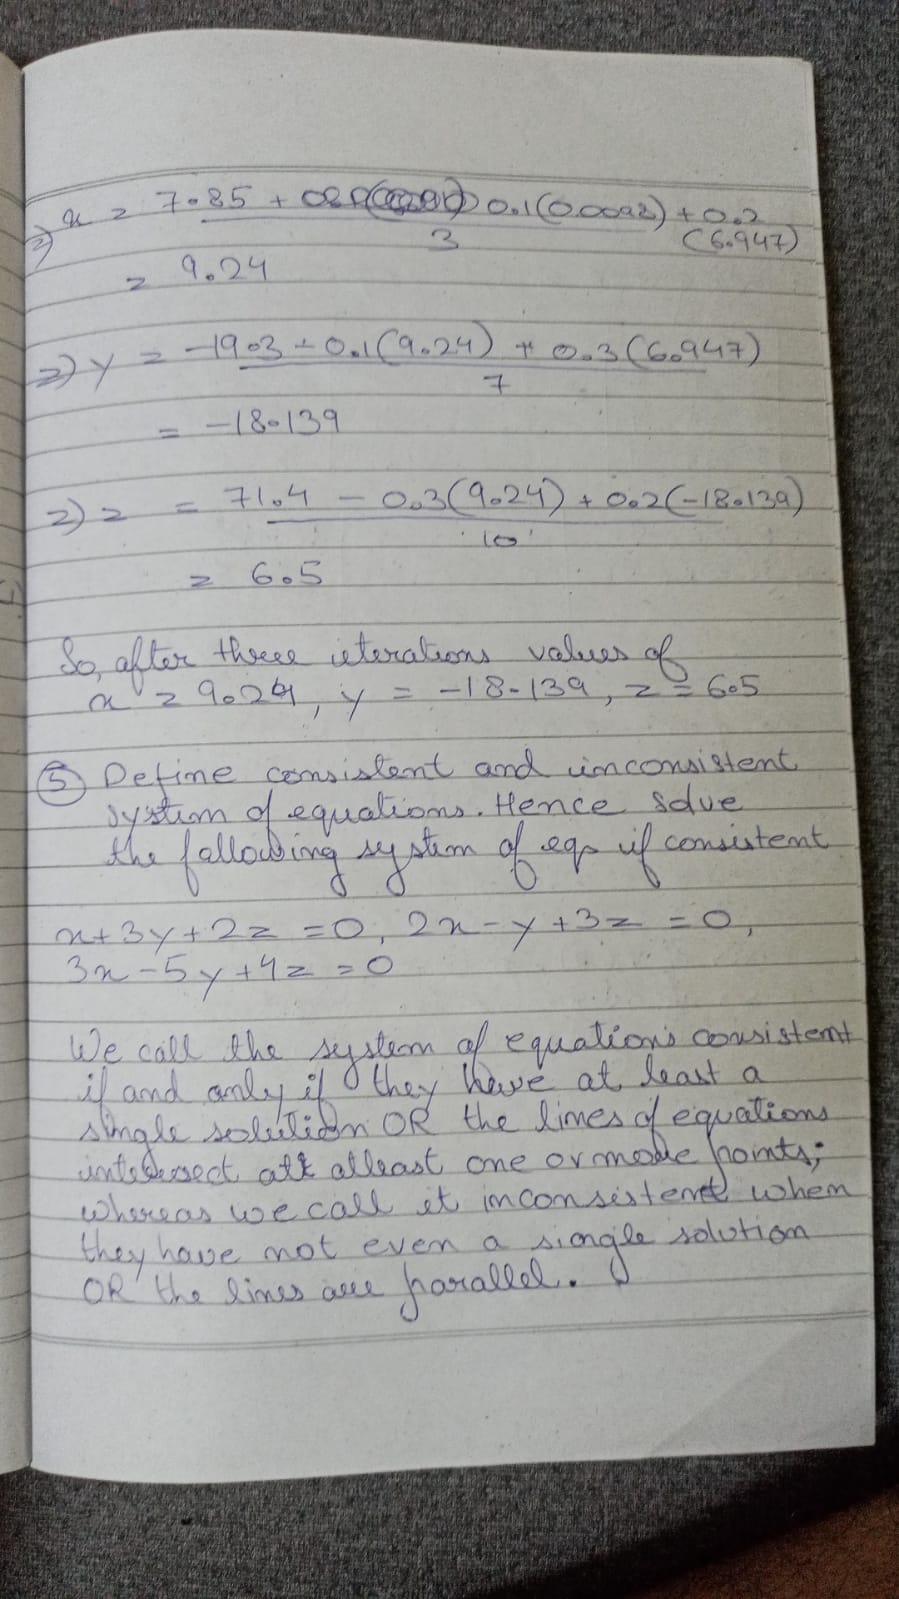 =) x = 7.85 + 0.1(0.0092) + 0.2
3 (6.947)
= 9.24
=) y = -19.3 - 0.1(9.24) + 0.3(6.947)
7
= -18.139
=) z = 71.4 - 0.3(9.24) + 0.2(-18.139)
10
= 6.5
So, after three iterations values of
x = 9.24, y = -18.139, z = 6.5
(5) Define consistent and inconsistent
system of equations. Hence solve
the following system of eqs if consistent
x+3y+2z = 0, 2x-y+3z = 0,
3x-5y+4z = 0
We call the system of equations consistent
if and only if they have at least a
single solution OR the lines of equations
intersect at atleast one or more points;
whereas we call it inconsistent when
they have not even a single solution
OR the lines are parallel.